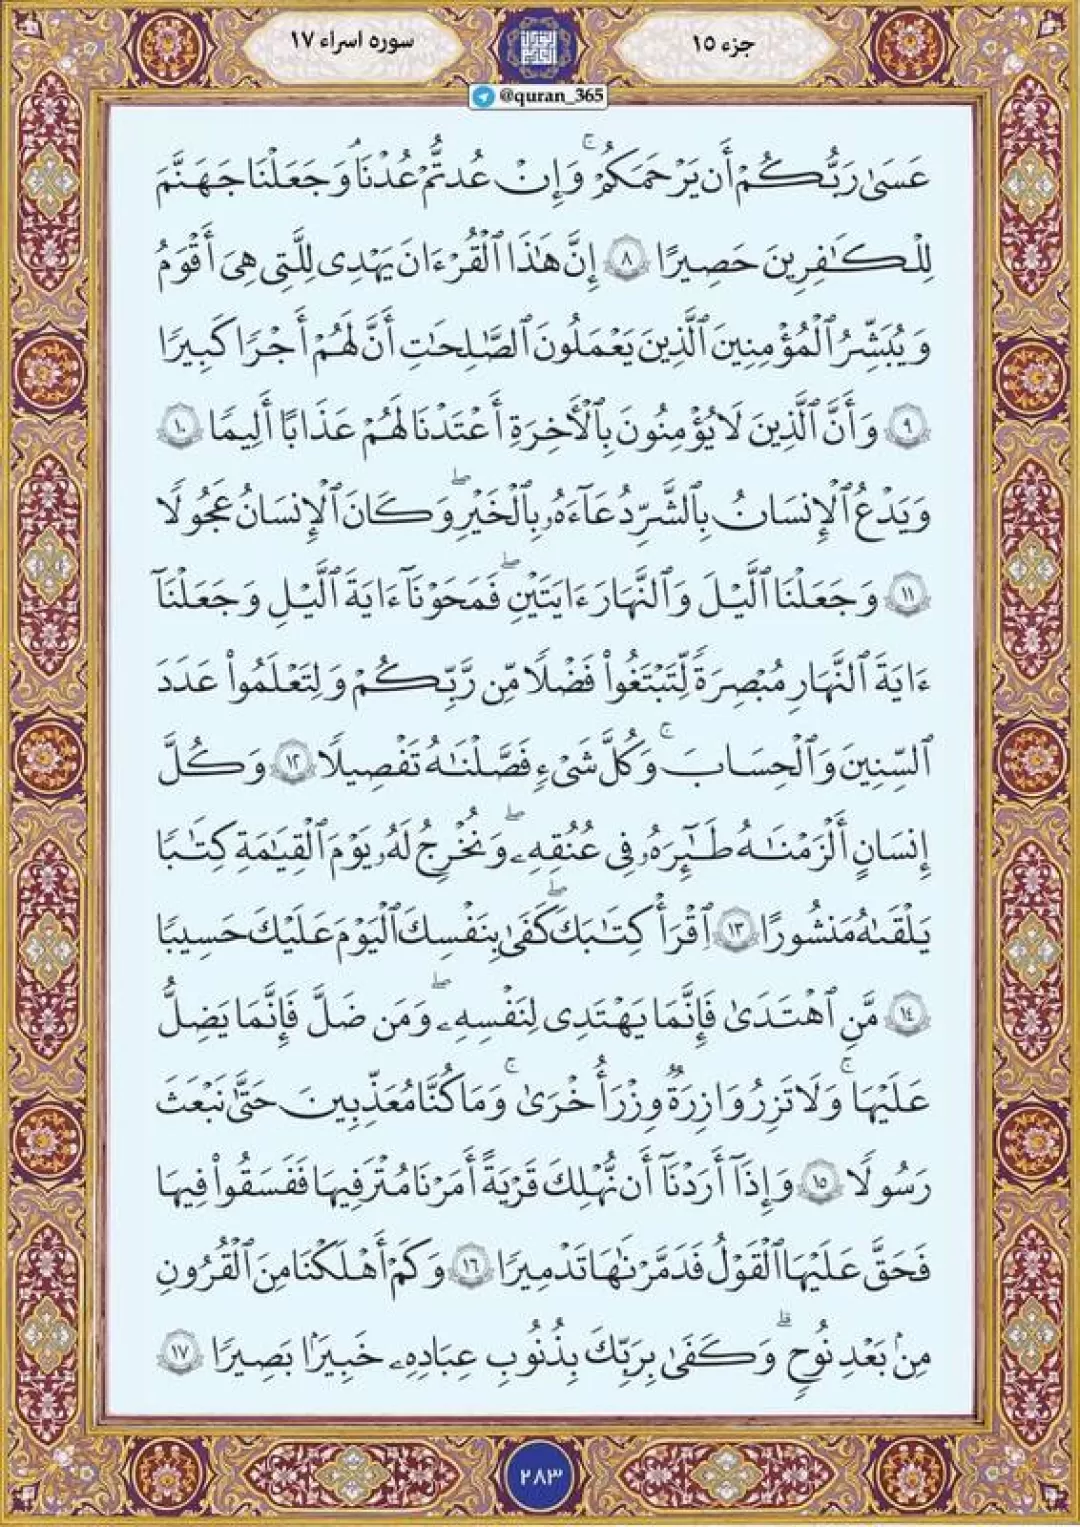 جزء ۱۵
سوره اسراء ۱۷
@quran_365
عَسَىٰ رَبُّكُمْ أَن يَرْحَمَكُمْ ۚ وَإِنْ عُدتُّمْ عُدْنَا ۘ وَجَعَلْنَا جَهَنَّمَ
لِلْكَـٰفِرِينَ حَصِيرًا ۝٨ إِنَّ هَـٰذَا ٱلْقُرْءَانَ يَهْدِى لِلَّتِى هِىَ أَقْوَمُ
وَيُبَشِّرُ ٱلْمُؤْمِنِينَ ٱلَّذِينَ يَعْمَلُونَ ٱلصَّـٰلِحَـٰتِ أَنَّ لَهُمْ أَجْرًا كَبِيرًا
۝٩ وَأَنَّ ٱلَّذِينَ لَا يُؤْمِنُونَ بِٱلْـَٔاخِرَةِ أَعْتَدْنَا لَهُمْ عَذَابًا أَلِيمًا ۝١٠
وَيَدْعُ ٱلْإِنسَـٰنُ بِٱلشَّرِّ دُعَآءَهُۥ بِٱلْخَيْرِ ۖ وَكَانَ ٱلْإِنسَـٰنُ عَجُولًا
۝١١ وَجَعَلْنَا ٱلَّيْلَ وَٱلنَّهَارَ ءَايَتَيْنِ ۖ فَمَحَوْنَآ ءَايَةَ ٱلَّيْلِ وَجَعَلْنَآ
ءَايَةَ ٱلنَّهَارِ مُبْصِرَةً لِّتَبْتَغُوا۟ فَضْلًا مِّن رَّبِّكُمْ وَلِتَعْلَمُوا۟ عَدَدَ
ٱلسِّنِينَ وَٱلْحِسَابَ ۚ وَكُلَّ شَىْءٍ فَصَّلْنَـٰهُ تَفْصِيلًا ۝١٢ وَكُلَّ
إِنسَـٰنٍ أَلْزَمْنَـٰهُ طَـٰٓئِرَهُۥ فِى عُنُقِهِۦ ۖ وَنُخْرِجُ لَهُۥ يَوْمَ ٱلْقِيَـٰمَةِ كِتَـٰبًا
يَلْقَىٰهُ مَنشُورًا ۝١٣ ٱقْرَأْ كِتَـٰبَكَ كَفَىٰ بِنَفْسِكَ ٱلْيَوْمَ عَلَيْكَ حَسِيبًا
۝١٤ مَّنِ ٱهْتَدَىٰ فَإِنَّمَا يَهْتَدِى لِنَفْسِهِۦ ۖ وَمَن ضَلَّ فَإِنَّمَا يَضِلُّ
عَلَيْهَا ۚ وَلَا تَزِرُ وَازِرَةٌ وِزْرَ أُخْرَىٰ ۗ وَمَا كُنَّا مُعَذِّبِينَ حَتَّىٰ نَبْعَثَ
رَسُولًا ۝١٥ وَإِذَآ أَرَدْنَآ أَن نُّهْلِكَ قَرْيَةً أَمَرْنَا مُتْرَفِيهَا فَفَسَقُوا۟ فِيهَا
فَحَقَّ عَلَيْهَا ٱلْقَوْلُ فَدَمَّرْنَـٰهَا تَدْمِيرًا ۝١٦ وَكَمْ أَهْلَكْنَا مِنَ ٱلْقُرُونِ
مِنۢ بَعْدِ نُوحٍ ۗ وَكَفَىٰ بِرَبِّكَ بِذُنُوبِ عِبَادِهِۦ خَبِيرًۢا بَصِيرًا ۝١٧
۲۸۳